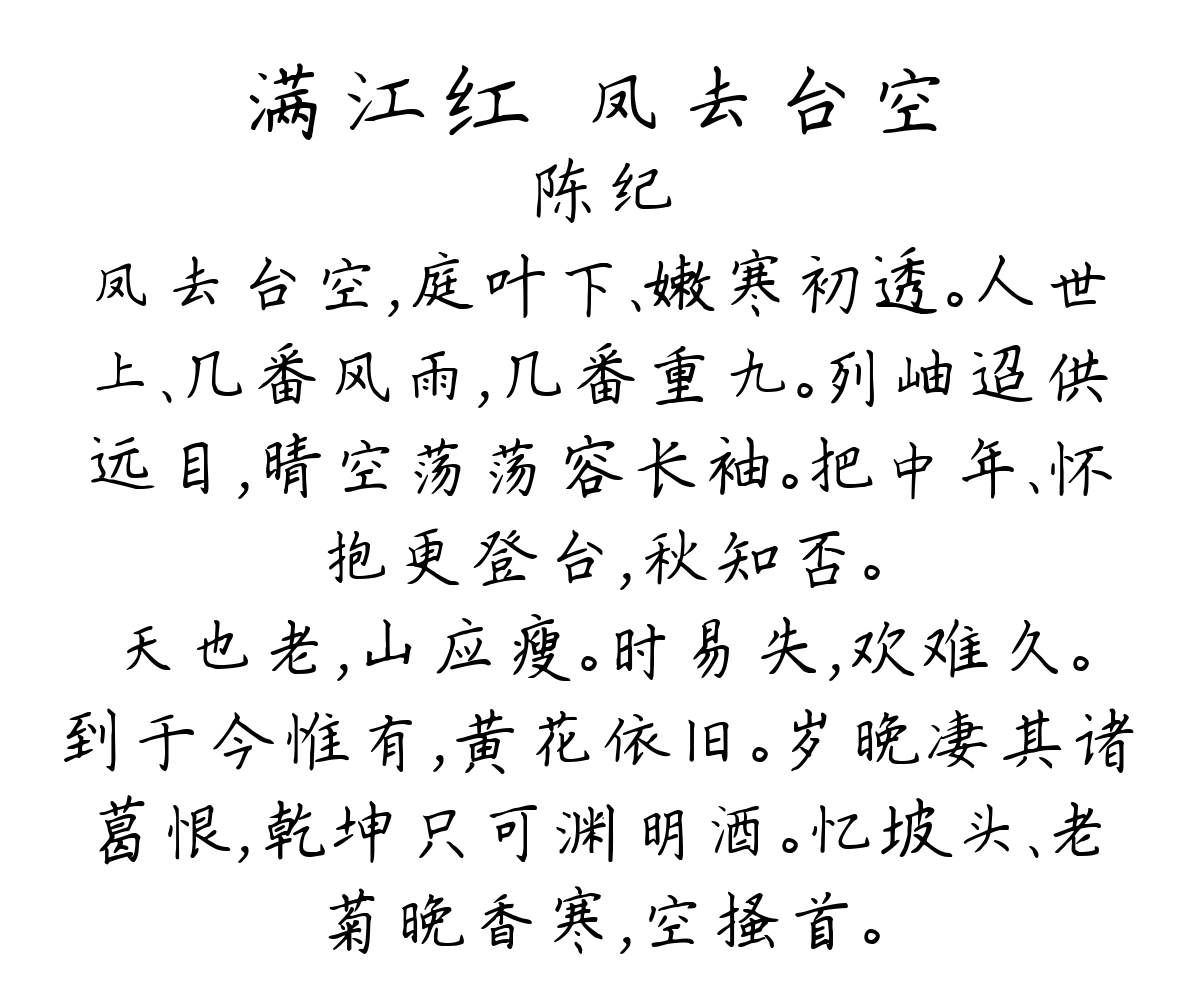 满江红 凤去台空
陈纪
凤去台空,庭叶下、嫩寒初透。人世
上、几番风雨,几番重九。列岫迢供
远目,晴空荡荡容长袖。把中年、怀
抱更登台,秋知否。
天也老,山应瘦。时易失,欢难久。
到于今惟有,黄花依旧。岁晚凄其诸
葛恨,乾坤只可渊明酒。忆坡头、老
菊晚香寒,空搔首。